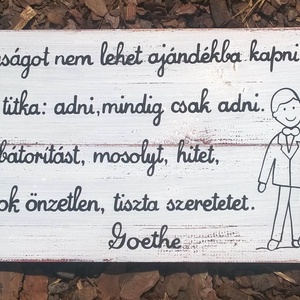 ságot nem lehet ajándékba kapni
titka: adni, mindig csak adni.
bátorítást, mosolyt, hitet,
ok önzetlen, tiszta szeretetet.
Goethe